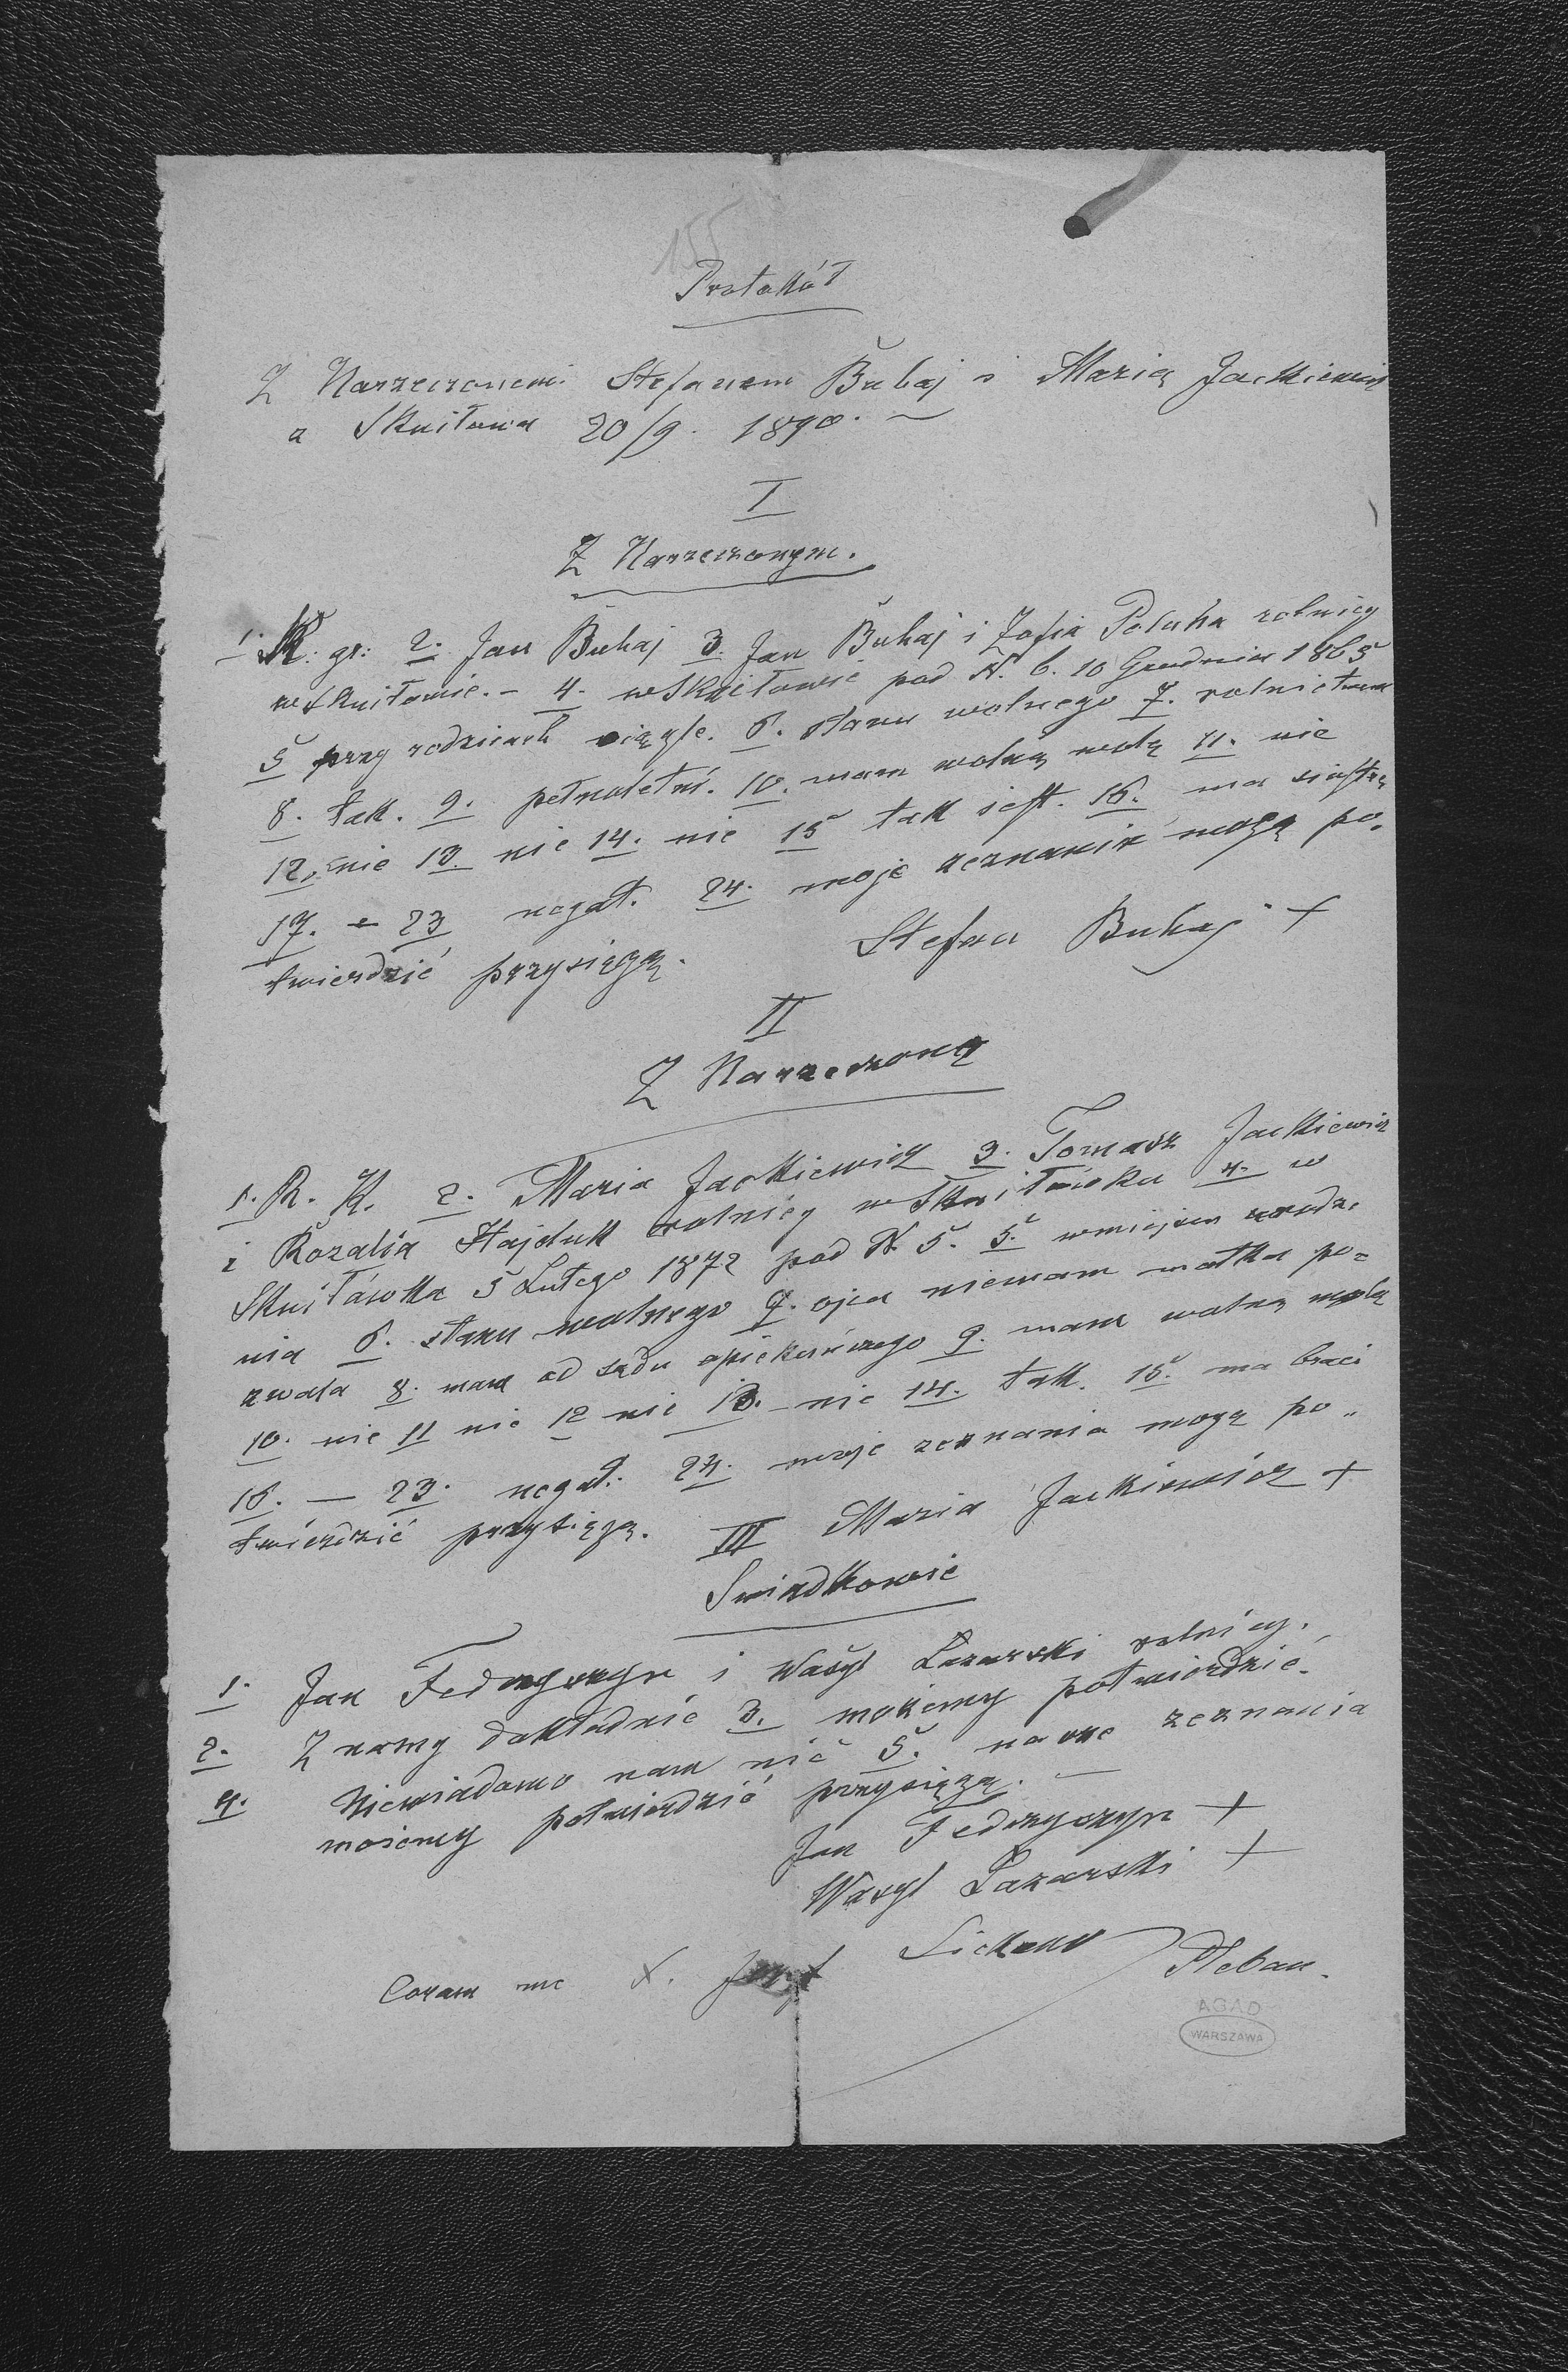 155
Protokół
Z Narzeczonemi Stefanem Buhaj i Marią Jackiewicz
z Skniłowa 20/9. 1890. —
I
Z Narzeczonym.
1. R: gr: 2. Jan Buhaj 3. Jan Buhaj i Zofia Poluha rolnicy
w Skniłowie. – 4. w Skniłowie pod N. 6. 10 Grudnia 1865
5 przy rodzicach ciągle. 6. stanu wolnego 7. rolnictwem
8. tak. 9. pełnoletni. 10. mam wolną wolę 11. nie
12. nie 13. nie 14. nie 15 tak jest. 16. ma siostrę
17. – 23 negat. 24. moje zeznania mogę po-
twierdzić przysięgą. Stefan Buhaj +
II
Z Narzeczoną
1. R. K. 2. Maria Jackiewicz 3. Tomasz Jackiewicz
i Rozalia Hajduk rolnicy w Skniłówku 4. w
Skniłówku 5 Lutego 1872 pod N. 5. 5. w miejscu urodze
nia 6. stanu wolnego 7. ojca niemam matka po=
zwala 8. mam od sądu opiekuńczego 9. mam wolną wolę
10. nie 11 nie 12 nie 13. – nie 14. tak. 15. ma braci
16. — 23. negat: 24. moje zeznania mogę po„
twierdzić przysięgą. III Maria Jackiewicz +
Swiadkowie
1. Jan Fedczyszyn i Wasyl Łazarski rolnicy.
2. Znamy dokładnie 3. możemy potwierdzić.
4. Niewiadomo nam nic 5. nasze zeznania
możemy potwierdzić przysięgą. —
Jan Fedczyszyn +
Wasyl Łazarski +
Coram me X. Józef Pleban.
AGAD
WARSZAWA